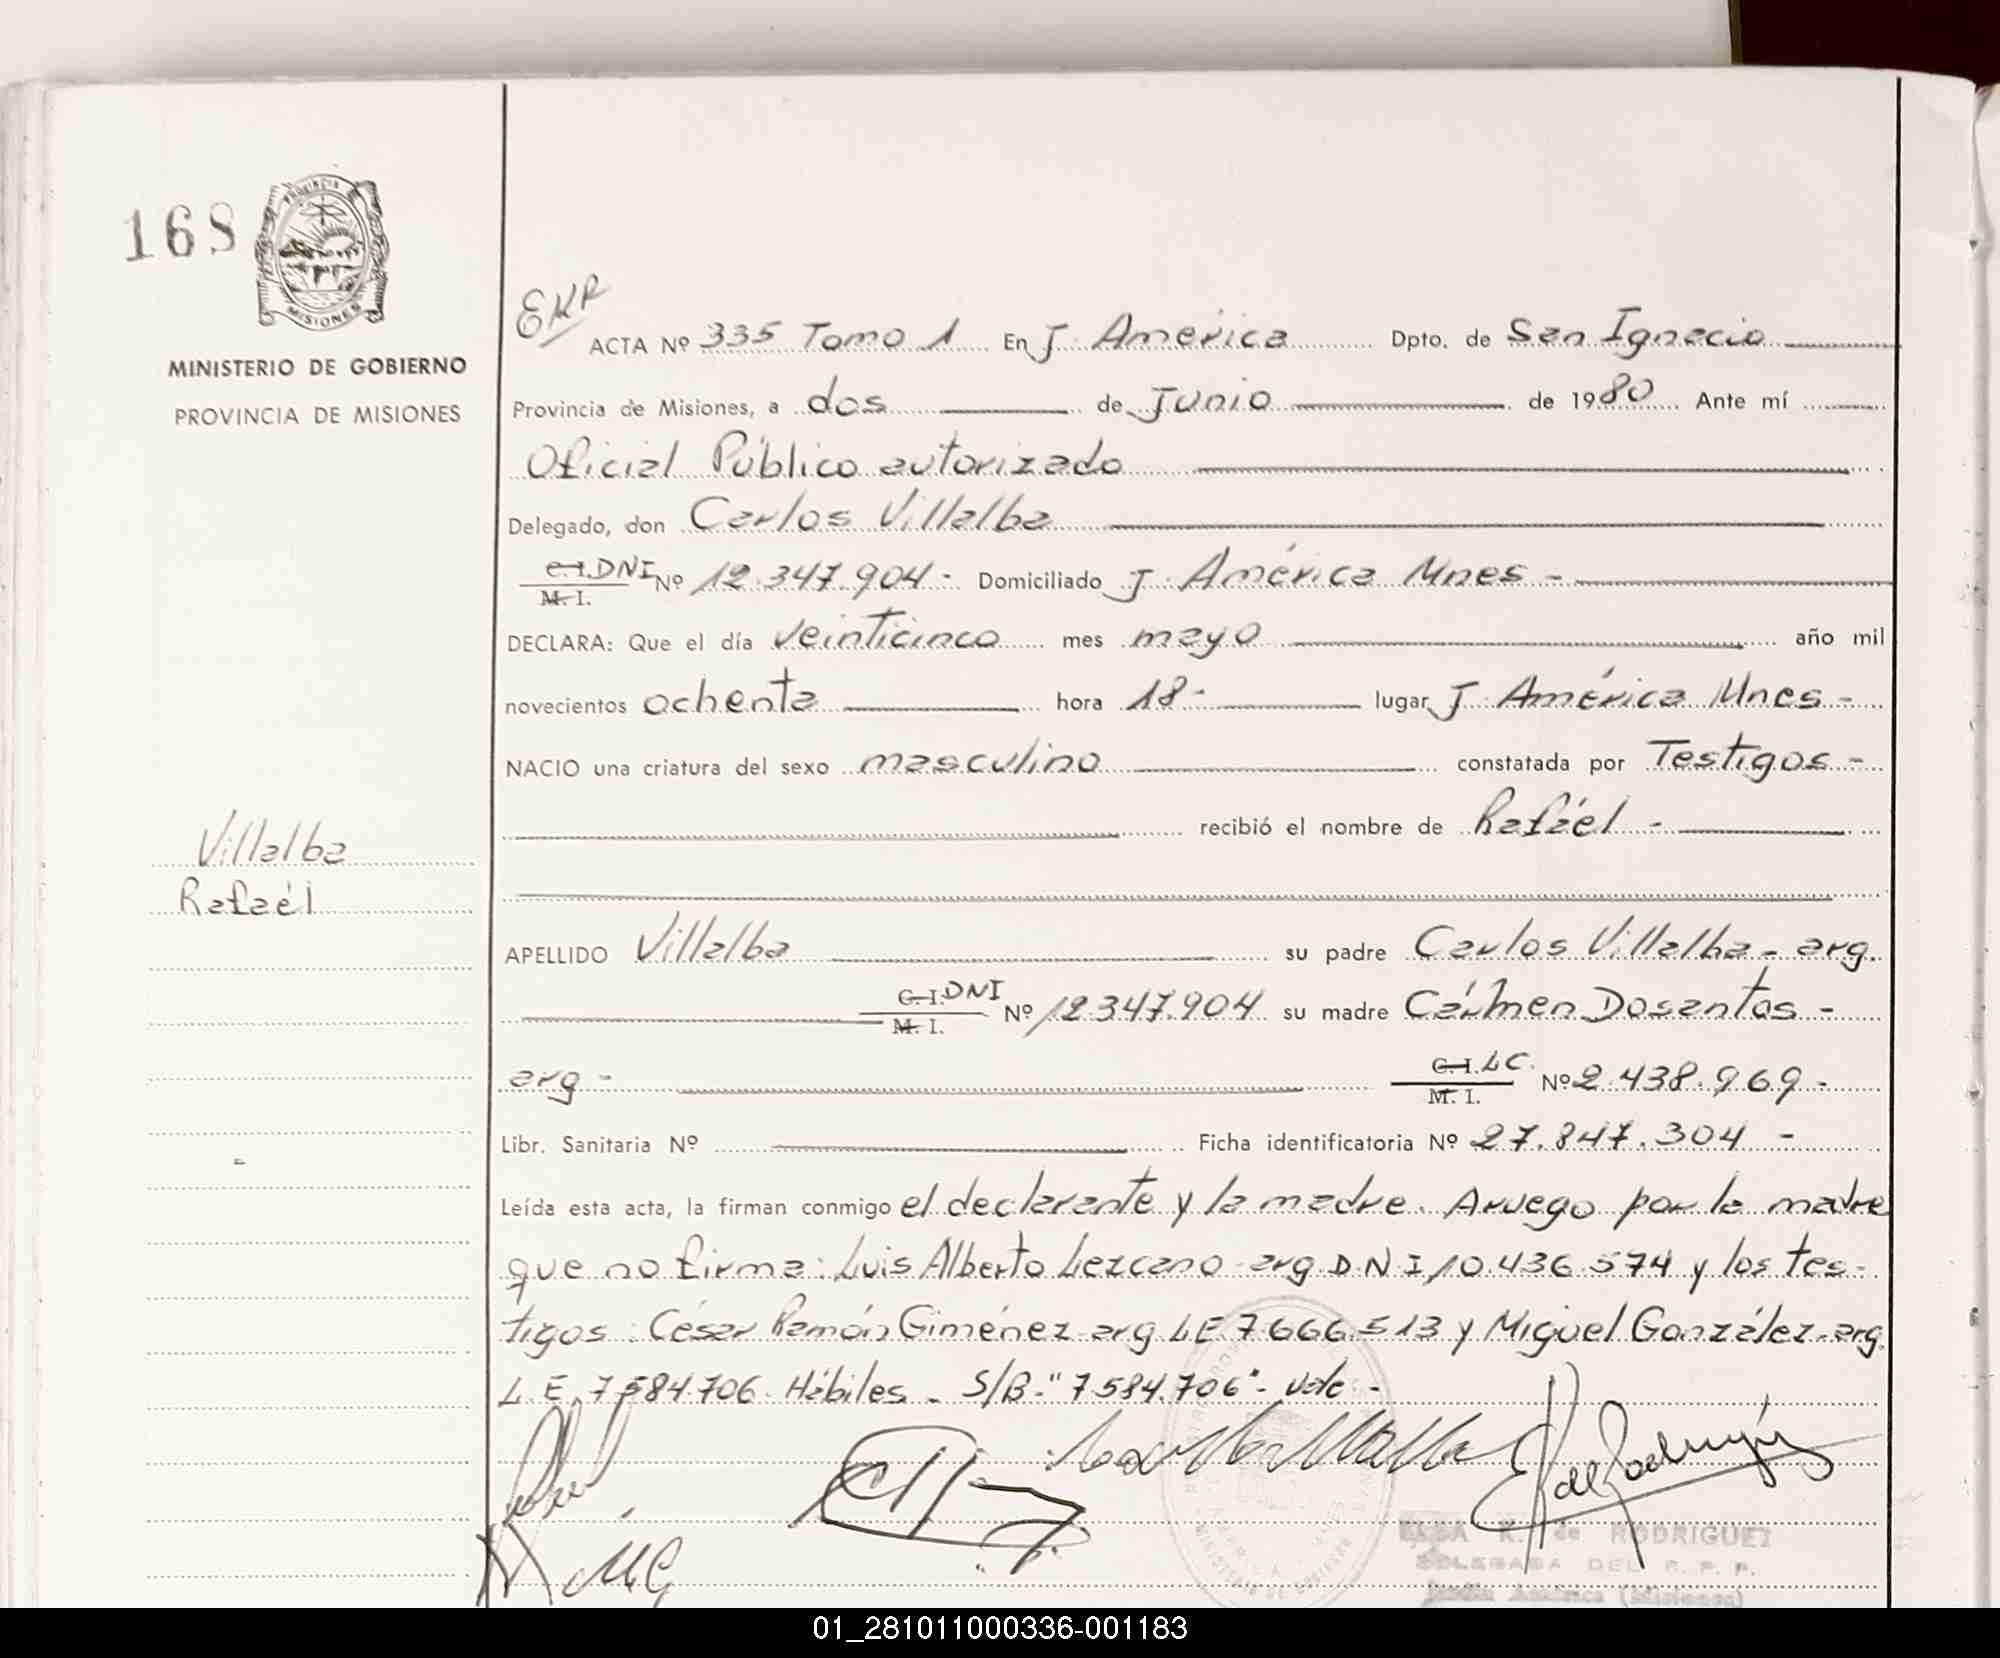 168
PROVINCIA
MISIONES
MINISTERIO DE GOBIERNO
PROVINCIA DE MISIONES
EKR
ACTA Nº 335 Tomo 1 En J. América Dpto. de San Ignacio
Provincia de Misiones, a dos de Junio de 1980 Ante mí
Oficial Público autorizado
Delegado, don Carlos Villalba
C.I. DNI Nº 12.347.904- Domiciliado J. América Mnes-
M. I.
DECLARA: Que el día veinticinco mes mayo año mil
novecientos ochenta hora 18- lugar J. América Mnes-
NACIO una criatura del sexo masculino constatada por Testigos-
recibió el nombre de Rafaél-
Villalba
Rafaél
APELLIDO Villalba su padre Carlos Villalba- arg.
C.I. DNI Nº 12.347.904 su madre Cármen Dosantos-
M. I.
arg- C.I. LC. Nº 2.438.969-
M. I.
Libr. Sanitaria Nº Ficha identificatoria Nº 27.847.304-
Leída esta acta, la firman conmigo el declarante y la madre. Aruego por la madre
que no firma: Luis Alberto Lezcano-arg. D.N.I 10.436.574 y los tes-
tigos: César Ramón Giménez-arg. L.E. 7.666.513 y Miguel González-arg.
L.E. 7.584.706. Hábiles- S/B-"7.584.706"- vale-
MG
ELSA K. de RODRIGUEZ
DELEGADA DEL R. P. P.
Jardín América (Misiones)
01_281011000336-001183